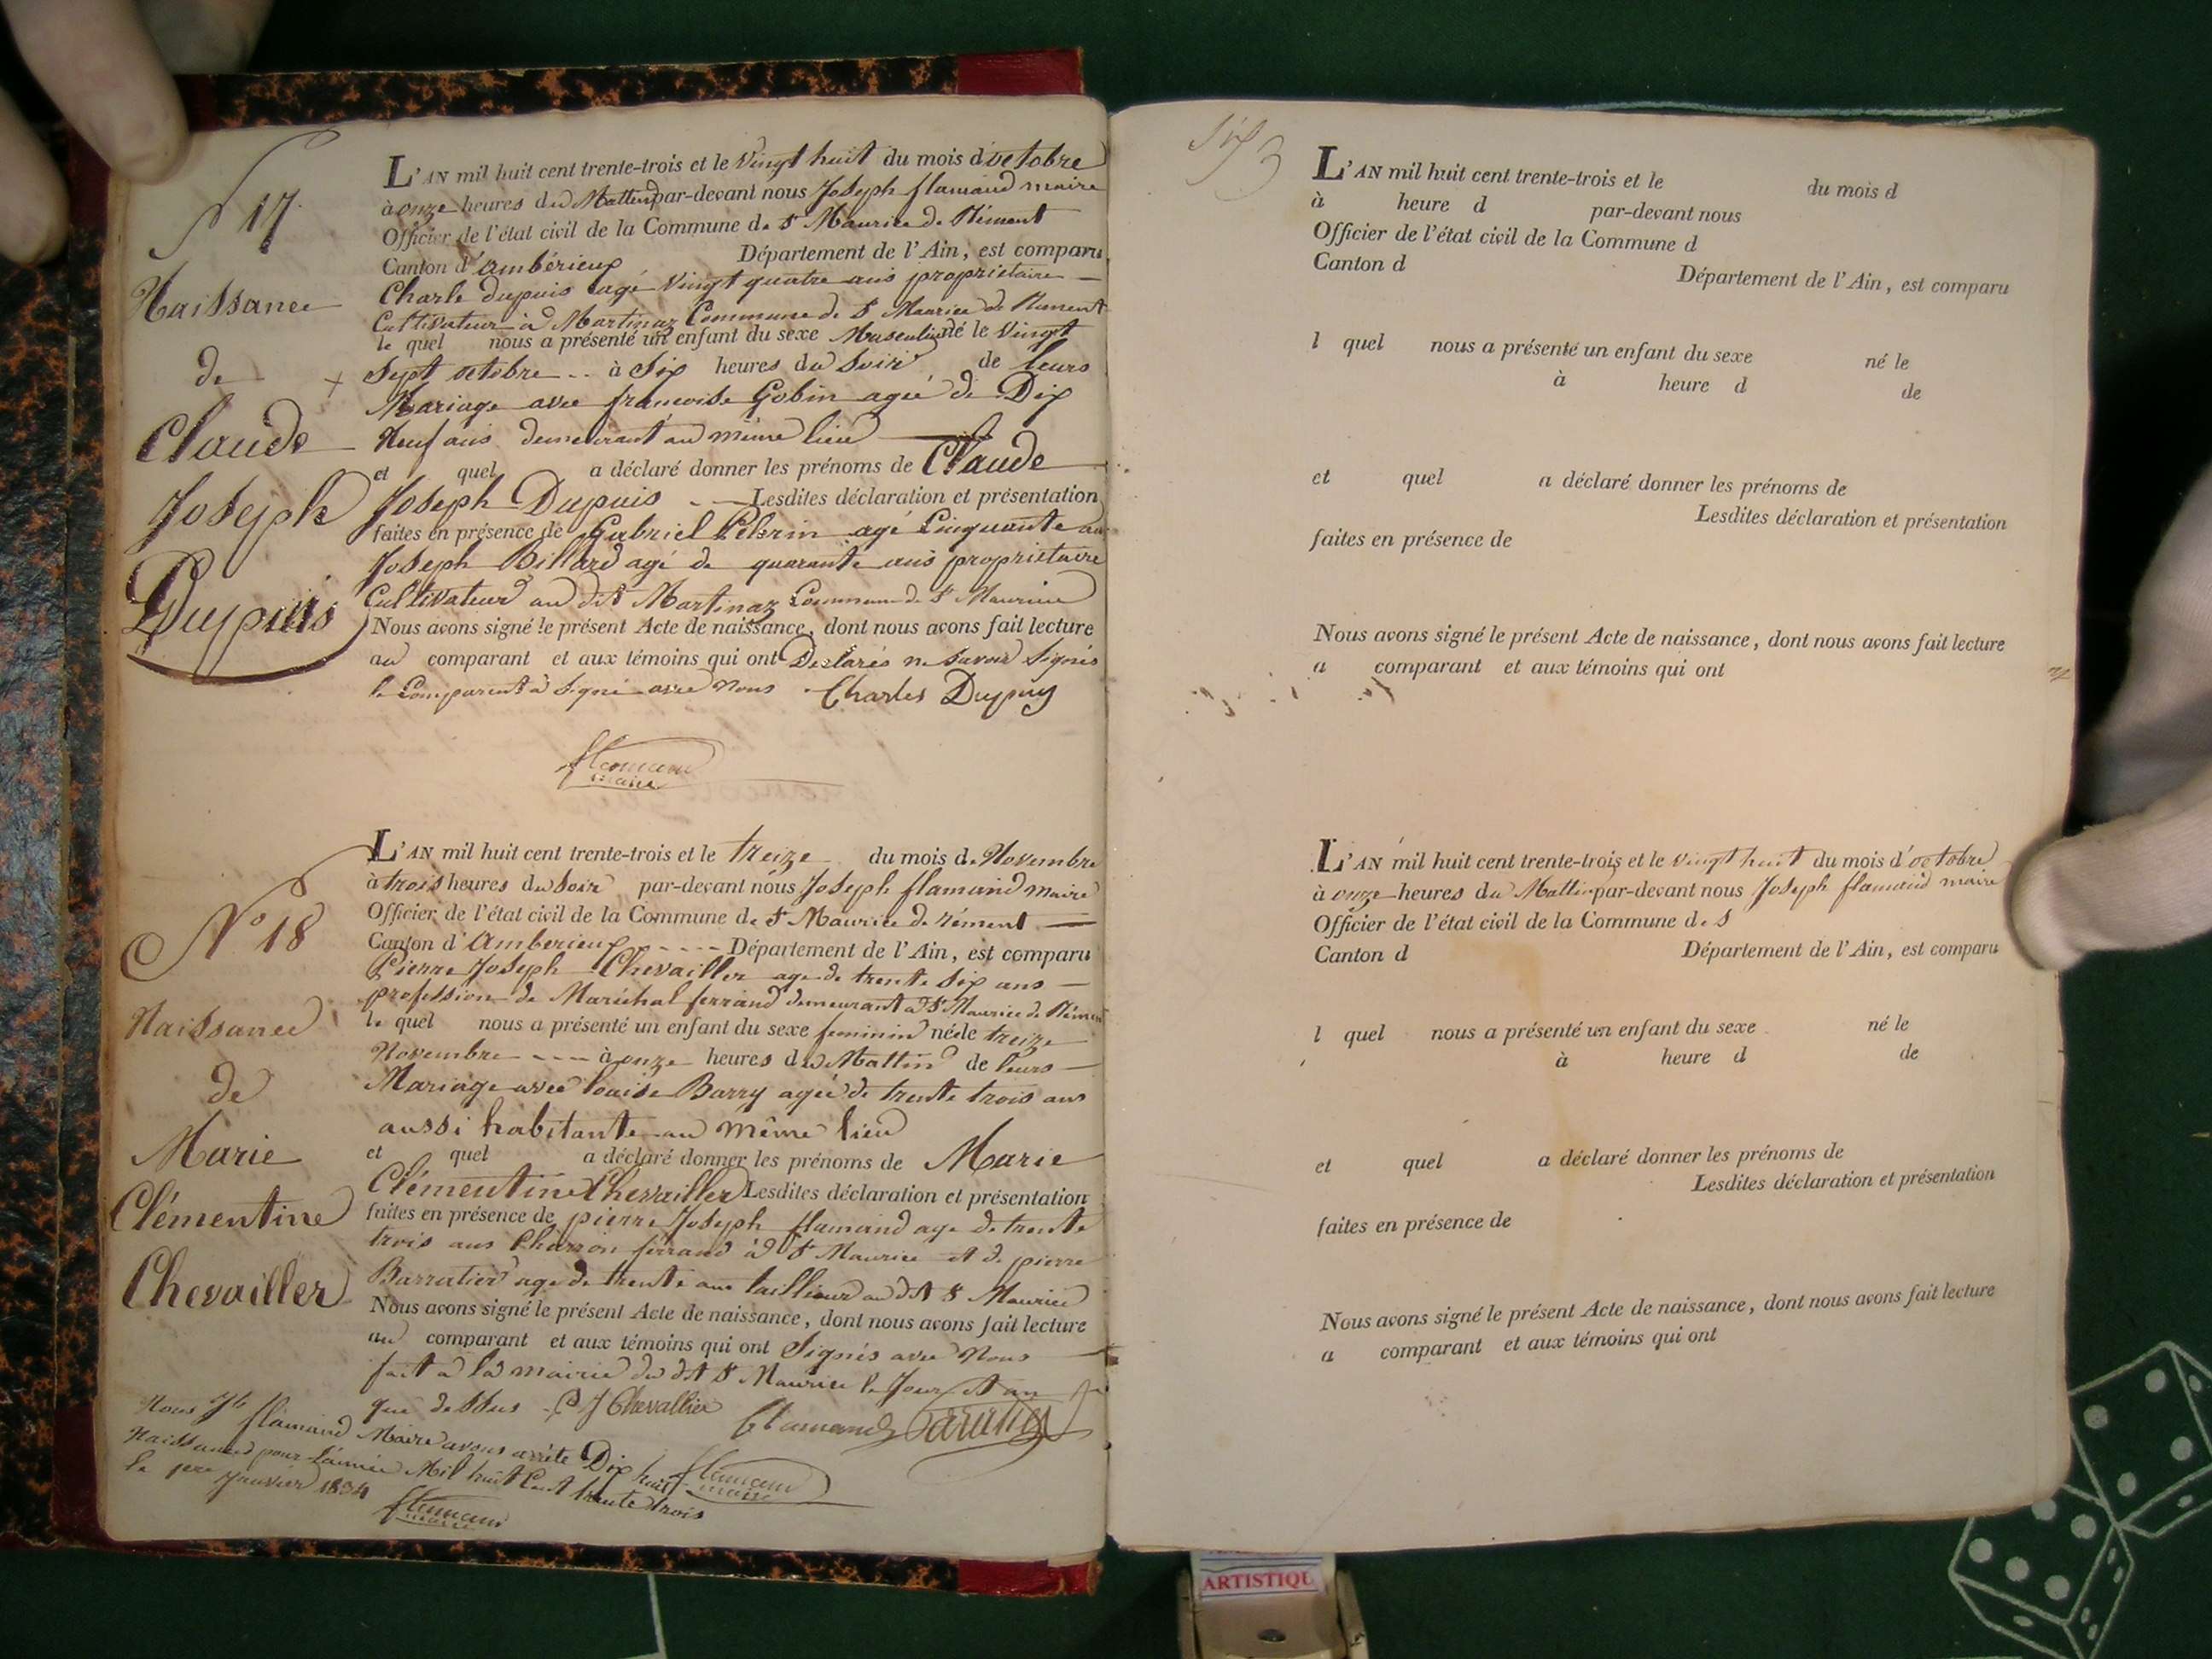 N 17
Naissance
de
Claude
Joseph
Dupuis
L'AN mil huit cent trente-trois et le Vingt huit du mois d'octobre
à onze heures du Mattin par-devant nous Joseph flamand maire
Officier de l'état civil de la Commune de St Maurice de Rément
Canton d'Ambérieux Département de l'Ain, est comparu
Charle dupuis agé Vingt quatre ans propriétaire
Cultivateur à Martinaz Commune de St Maurice de Rément
le quel nous a présenté un enfant du sexe Masculin né le Vingt
Sept octobre à Six heures du Soir de leurs
Mariage avec francoise Gobin agée de Dix
Neuf ans demeurant au même lieu
et quel a déclaré donner les prénoms de Claude
Joseph Dupuis Lesdites déclaration et présentation
faites en présence de Gabriel Pelerin agé Cinquante an
Joseph Billard agé de quarante ans propriétaire
Cultivateur au dit Martinaz Commune de St Maurice
Nous avons signé le présent Acte de naissance, dont nous avons fait lecture
au comparant et aux témoins qui ont Déclarés ne Savoir Signés
le Comparent à Signé avec Nous Charles Dupuy
flamand
maire
N° 18
Naissance
de
Marie
Clémentine
Chevailler
L'AN mil huit cent trente-trois et le treize du mois de Novembre
à trois heures du Soir par-devant nous Joseph flamand maire
Officier de l'état civil de la Commune de St Maurice de rément
Canton d'Amberieux Département de l'Ain, est comparu
Pierre Joseph Chevailler age de trente Six ans
profession de Maréchal ferrand demeurant à St Maurice de Rément
le quel nous a présenté un enfant du sexe feminin née le treize
Novembre à onze heures du Mattin de leurs
Mariage avec louise Barry agée de trente trois ans
aussi habitante au même lieu
et quel a déclaré donner les prénoms de Marie
Clémentine Chevailler Lesdites déclaration et présentation
faites en présence de pierre Joseph flamand age de trente
trois ans Charron ferrand à St Maurice et de pierre
Barratier age de trente ans taillieur au dit St Maurice
Nous avons signé le présent Acte de naissance, dont nous avons fait lecture
au comparant et aux témoins qui ont Signés avec Nous
fait à la mairie du dit St Maurice le Jour et an
que dessus P J Chevallier
flamand Baratier
flamand
maire
Nous Jh flamand Maire avons arrété Dix huit
Naissances pour l'année Mil huit Cent trente trois
le 1er Janvier 1834
flamand
maire
L'AN mil huit cent trente-trois et le du mois d
à heure d par-devant nous
Officier de l'état civil de la Commune d
Canton d Département de l'Ain, est comparu
l quel nous a présenté un enfant du sexe né le
à heure d de
et quel a déclaré donner les prénoms de
Lesdites déclaration et présentation
faites en présence de
Nous avons signé le présent Acte de naissance, dont nous avons fait lecture
a comparant et aux témoins qui ont
L'AN mil huit cent trente-trois et le vingt huit du mois d'octobre
à onze heures du Mattin par-devant nous Joseph flamand maire
Officier de l'état civil de la Commune de S
Canton d Département de l'Ain, est comparu
l quel nous a présenté un enfant du sexe né le
à heure d de
et quel a déclaré donner les prénoms de
Lesdites déclaration et présentation
faites en présence de
Nous avons signé le présent Acte de naissance, dont nous avons fait lecture
a comparant et aux témoins qui ont
ARTISTIQU